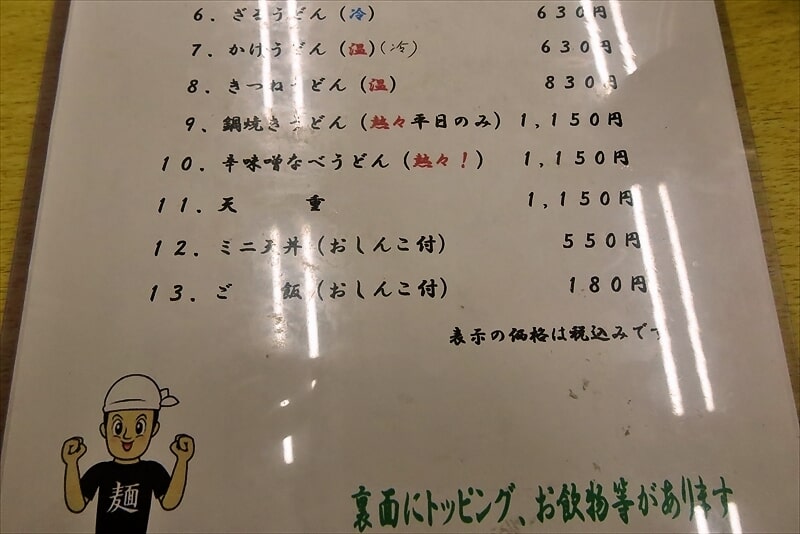 6. ざるうどん (冷) 630円
7. かけうどん (温)(冷) 630円
8. きつねうどん (温) 830円
9. 鍋焼きうどん (熱々平日のみ) 1,150円
10. 辛味噌なべうどん (熱々！) 1,150円
11. 天 重 1,150円
12. ミニ天丼 (おしんこ付) 550円
13. ご 飯 (おしんこ付) 180円
表示の価格は税込みです
麺
裏面にトッピング、お飲物等があります